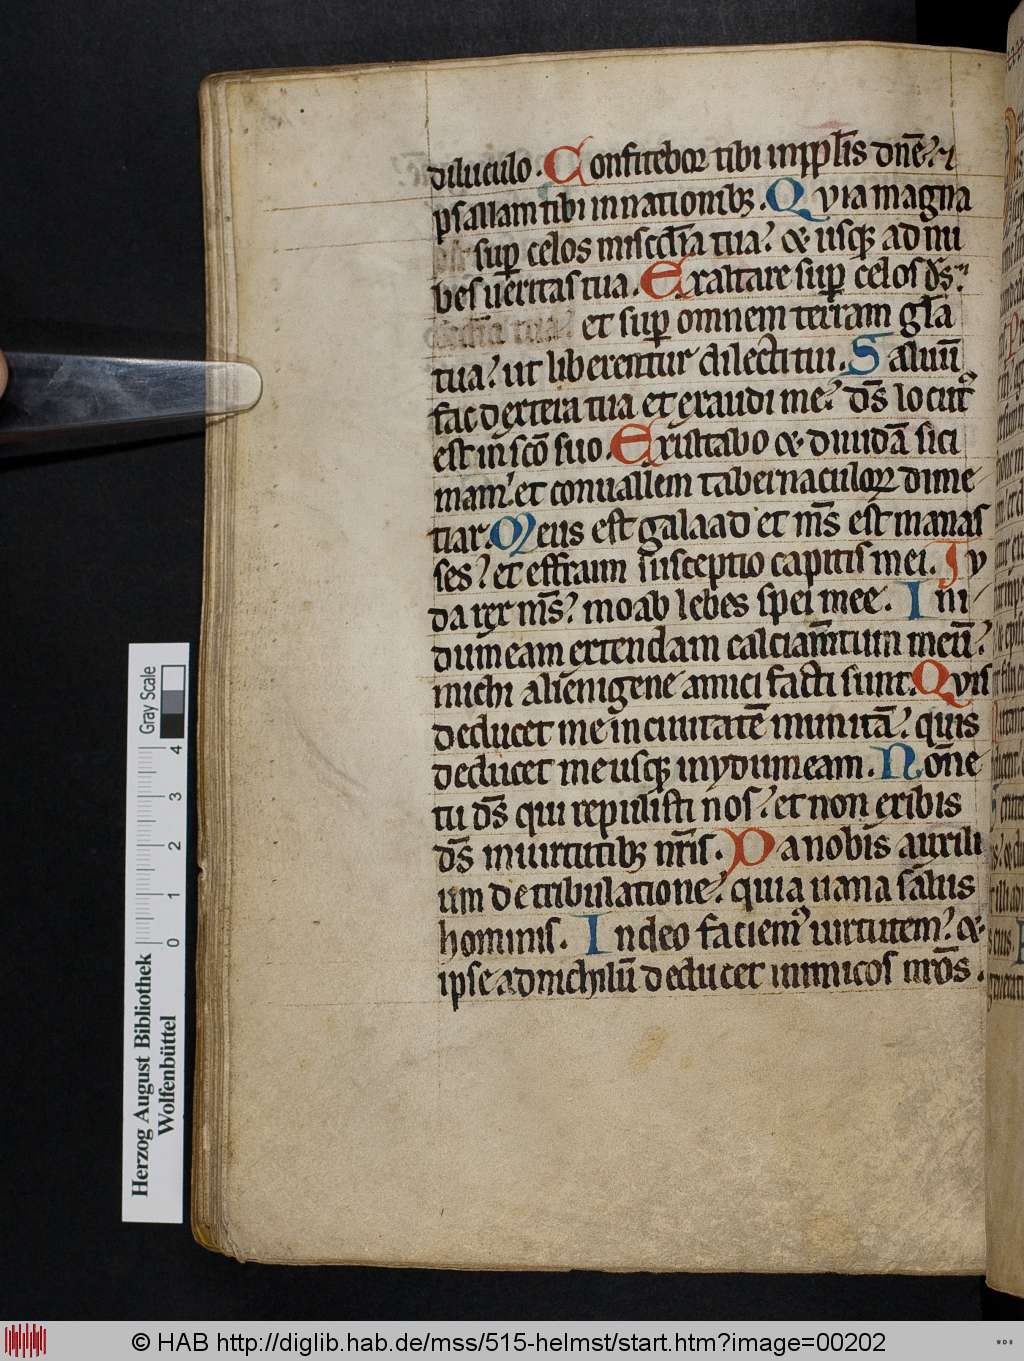 diluculo. Confitebor tibi in pp̄lis dn̄e? ⁊
psallam tibi in nationibꝫ. Qvia magna
sup̄ celos miscd̄ia tua? & usqꝫ ad nu
bes ueritas tua. Exaltare sup̄ celos ds̄?
et sup̄ omnem terram gl̄a
tua? ut liberentur dilecti tui. Saluū
fac dextera tua et exaudi me? ds̄ locutꝰ
est in sc̄o suo. Exultabo & diuidā sici
mam? et conuallem tabernaculoꝝ dime
tiar. Meus est galaad et ms̄ est manas
ses? et effraim susceptio capitis mei. Jv
da rex ms̄? moab lebes spei mee. In i
dumeam extendam calciam̄tum meū?
michi alienigene amici facti sunt. Qvis
deducet me in ciuitatē munitā? quis
deducet me usqꝫ in ydumeam. Nōne
tu ds̄ qui repulisti nos? et non exibis
ds̄ in uirtutibꝫ nr̄is. Da nobis auxili
um de tribulatione? quia uana salus
hominis. In deo faciemꝰ uirtutem? &
ipse ad nichilū deducet inimicos nr̄os.
Herzog August Bibliothek
Wolfenbüttel
0 1 2 3 4
Gray Scale
© HAB http://diglib.hab.de/mss/515-helmst/start.htm?image=00202